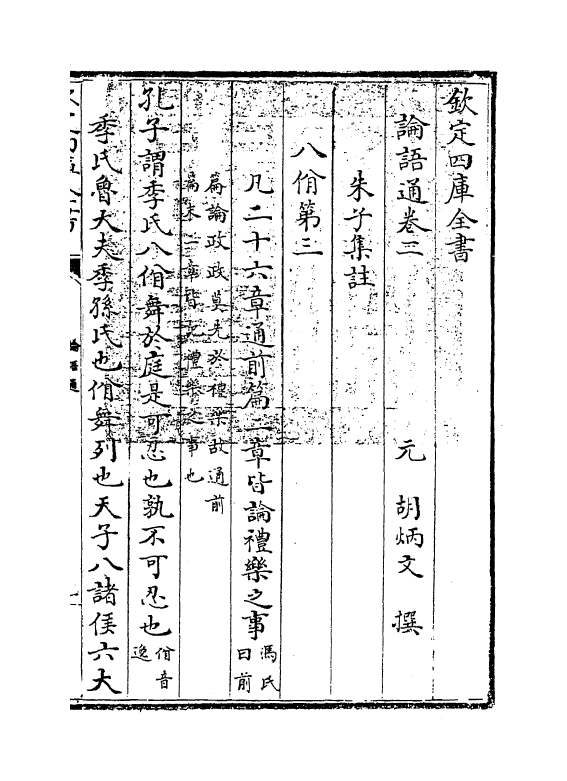 欽定四庫全書
論語通卷二　　　元　胡炳文　撰
朱子集註
八佾第三
凡二十六章通前篇末二章皆論禮樂之事馮氏曰前
篇論政政莫先於禮樂故通前
篇末二章皆記禮樂之事也
孔子謂季氏八佾舞於庭是可忍也孰不可忍也佾音逸
季氏魯大夫季孫氏也佾舞列也天子八諸侯六大
論語通